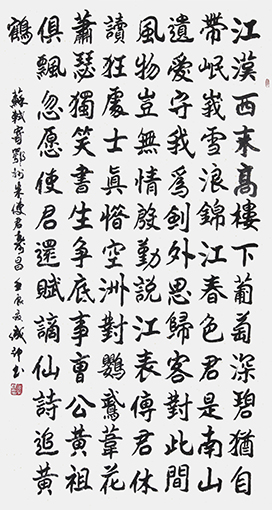 江漢西來高樓下葡萄深碧猶自
帶岷峩雪浪錦江春色君是南山
遺愛守我爲劍外思歸客對此間
風物豈無情殷勤說江表傳君休
讀狂處士真惜空洲對鸚鵡葦花
蕭瑟獨笑書生爭底事曹公黃祖
俱飄忽愿使君還賦謫仙詩追黃
鶴
蘇軾寄鄂州朱使君壽昌 壬辰